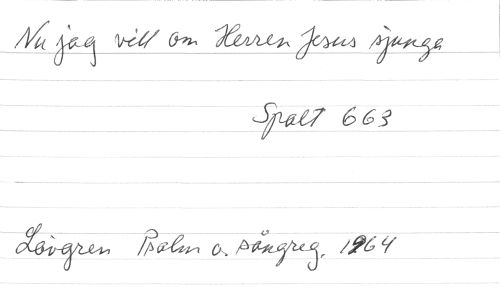 Nu jag vill om Herren Jesus sjunga
Spalt 663
Lövgren Psalm o. sångreg. 1964